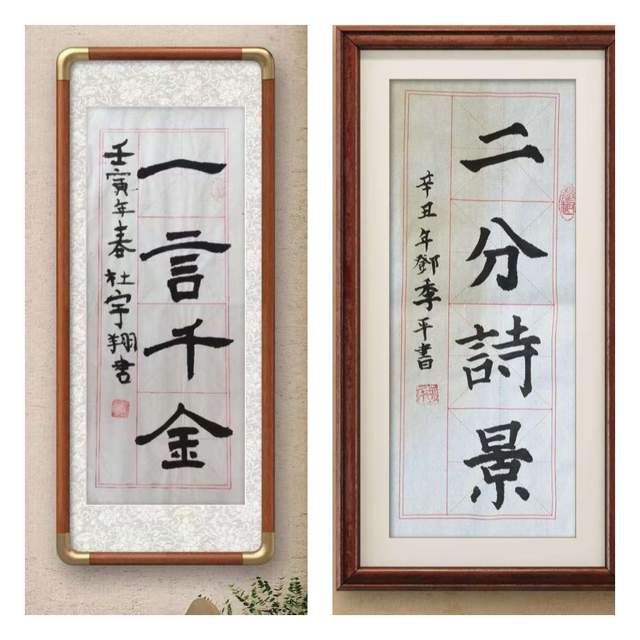 一言千金
壬寅年春杜宇翔书
二分詩景
辛丑年鄧季平書